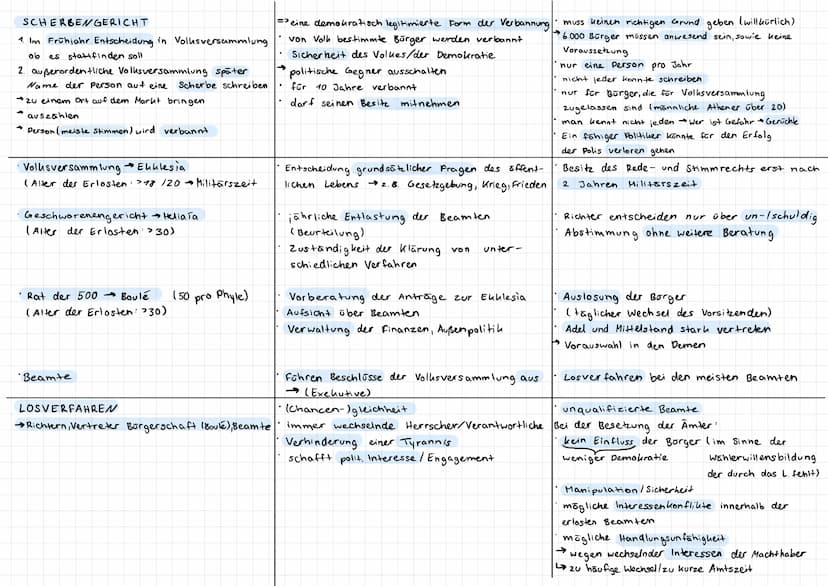 SCHERBENGERICHT
1. Im Frühjahr Entscheidung in Volksversammlung
ob es stattfinden soll
2. außerordentliche Volksversammlung später
Name der Person auf eine Scherbe schreiben
→ zu einem Ort auf dem Markt bringen
→ auszählen
→ Person (meiste Stimmen) wird verbannt
=> eine demokratisch legitimierte Form der Verbannung
· von Volk bestimmte Bürger werden verbannt
· Sicherheit des Volkes/der Demokratie
→ politische Gegner ausschalten
· für 10 Jahre verbannt
· darf seinen Besitz mitnehmen
· muss keinen richtigen Grund geben (willkürlich)
→ 6.000 Bürger müssen anwesend sein, sowie keine
Voraussetzung
· nur eine Person pro Jahr
· nicht jeder konnte schreiben
· nur für Bürger, die für Volksversammlung
zugelassen sind (männliche Athener über 20)
· man kennt nicht jeden → Wer ist Gefahr → Gerüchte
· Ein fähiger Politiker könnte für den Erfolg
der Polis verloren gehen
· Volksversammlung → Ekklesia
(Alter der Erlosten: >18 /20 → Militärszeit
· Entscheidung grundsätzlicher Fragen des öffent-
lichen Lebens → z.B. Gesetzgebung, Krieg, Frieden
· Besitz des Rede- und Stimmrechts erst nach
2 Jahren Militärszeit
· Geschworenengericht → Heliaia
(Alter der Erlosten: >30)
· jährliche Entlastung der Beamten
(Beurteilung)
· Zuständigkeit der Klärung von unter-
schiedlichen Verfahren
· Richter entscheiden nur über un-/schuldig
· Abstimmung ohne weitere Beratung
· Rat der 500 → Boulé (50 pro Phyle)
(Alter der Erlosten: >30)
· Vorberatung der Anträge zur Ekklesia
· Aufsicht über Beamten
· Verwaltung der Finanzen, Außenpolitik
· Auslosung der Bürger
(täglicher Wechsel des Vorsitzenden)
· Adel und Mittelstand stark vertreten
→ Vorauswahl in den Demen
· Beamte
· Führen Beschlüsse der Volksversammlung aus
→ (Exekutive)
· Losverfahren bei den meisten Beamten
LOSVERFAHREN
→ Richtern, Vertreter Bürgerschaft (Boulé), Beamte
· (Chancen-)gleichheit
· immer wechselnde Herrscher/Verantwortliche
· Verhinderung einer Tyrannis
· schafft polit. Interesse / Engagement
· unqualifizierte Beamte
Bei der Besetzung der Ämter:
· kein Einfluss der Bürger (im Sinne der
weniger Demokratie Wählerwillensbildung
der durch das L. fehlt)
· Manipulation / Sicherheit
· mögliche Interessenkonflikte innerhalb der
erlosten Beamten
· mögliche Handlungsunfähigkeit
→ wegen wechselnder Interessen der Machthaber
↳ zu häufige Wechsel/zu kurze Amtszeit